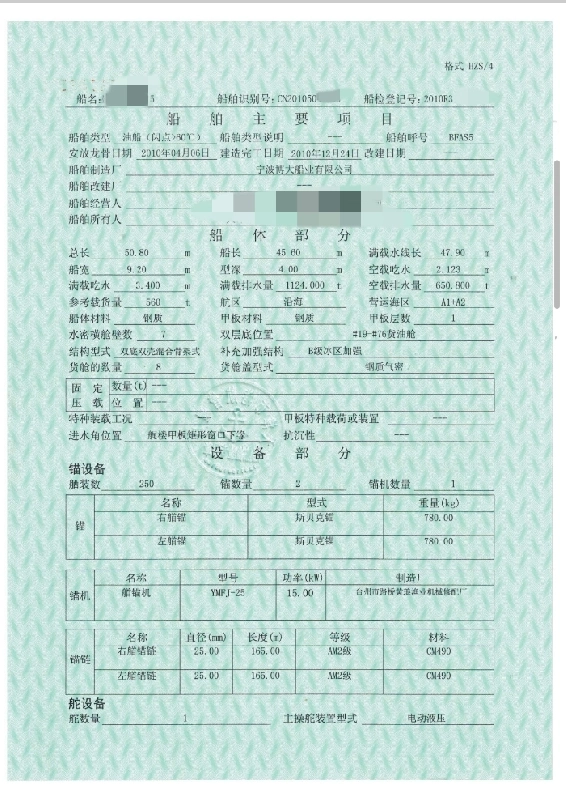 格式 HZS/4
船名: 5 船舶识别号:CN20105C 船检登记号:2010R3
船舶主要项目
船舶类型 油船(闪点>60℃) 船舶类型说明 --- 船舶呼号 BFAS5
安放龙骨日期 2010年04月06日 建造完工日期 2010年12月24日 改建日期
船舶制造厂 宁波博大船业有限公司
船舶改建厂 ---
船舶经营人
船舶所有人
船体部分
总长 50.80 m 船长 45.60 m 满载水线长 47.90 m
船宽 9.20 m 型深 4.00 m 空载吃水 2.123 m
满载吃水 3.400 m 满载排水量 1124.000 t 空载排水量 650.800 t
参考载货量 560 t 航区 沿海 营运海区 A1+A2
船体材料 钢质 甲板材料 钢质 甲板层数 1
水密横舱壁数 7 双层底位置 #19-#76货油舱
结构型式 双底双壳混合骨架式 补充加强结构 B级冰区加强
货舱的数量 8 货舱盖型式 钢质气密
固定压载 数量(t) ---
位置 ---
特种装载工况 --- 甲板特种载荷或装置 ---
进水角位置 艉楼甲板矩形窗口下缘 抗沉性 ---
设备部分
锚设备
舾装数 250 锚数量 2 锚机数量 1
锚 名称 型式 重量(kg)
右艏锚 斯贝克锚 780.00
左艏锚 斯贝克锚 780.00
锚机 名称 型号 功率(kW) 制造厂
艏锚机 YMFJ-25 15.00
锚链 名称 直径(mm) 长度(m) 等级 材料
右艏锚链 25.00 165.00 AM2级 CM490
左艏锚链 25.00 165.00 AM2级 CM490
舵设备
舵数量 1 主操舵装置型式 电动液压